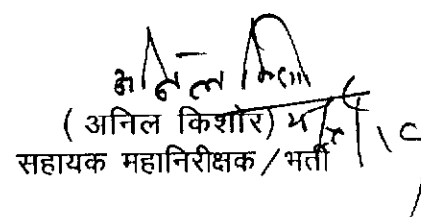 अनिल किशोर
( अनिल किशोर)
सहायक महानिरीक्षक / भर्ती